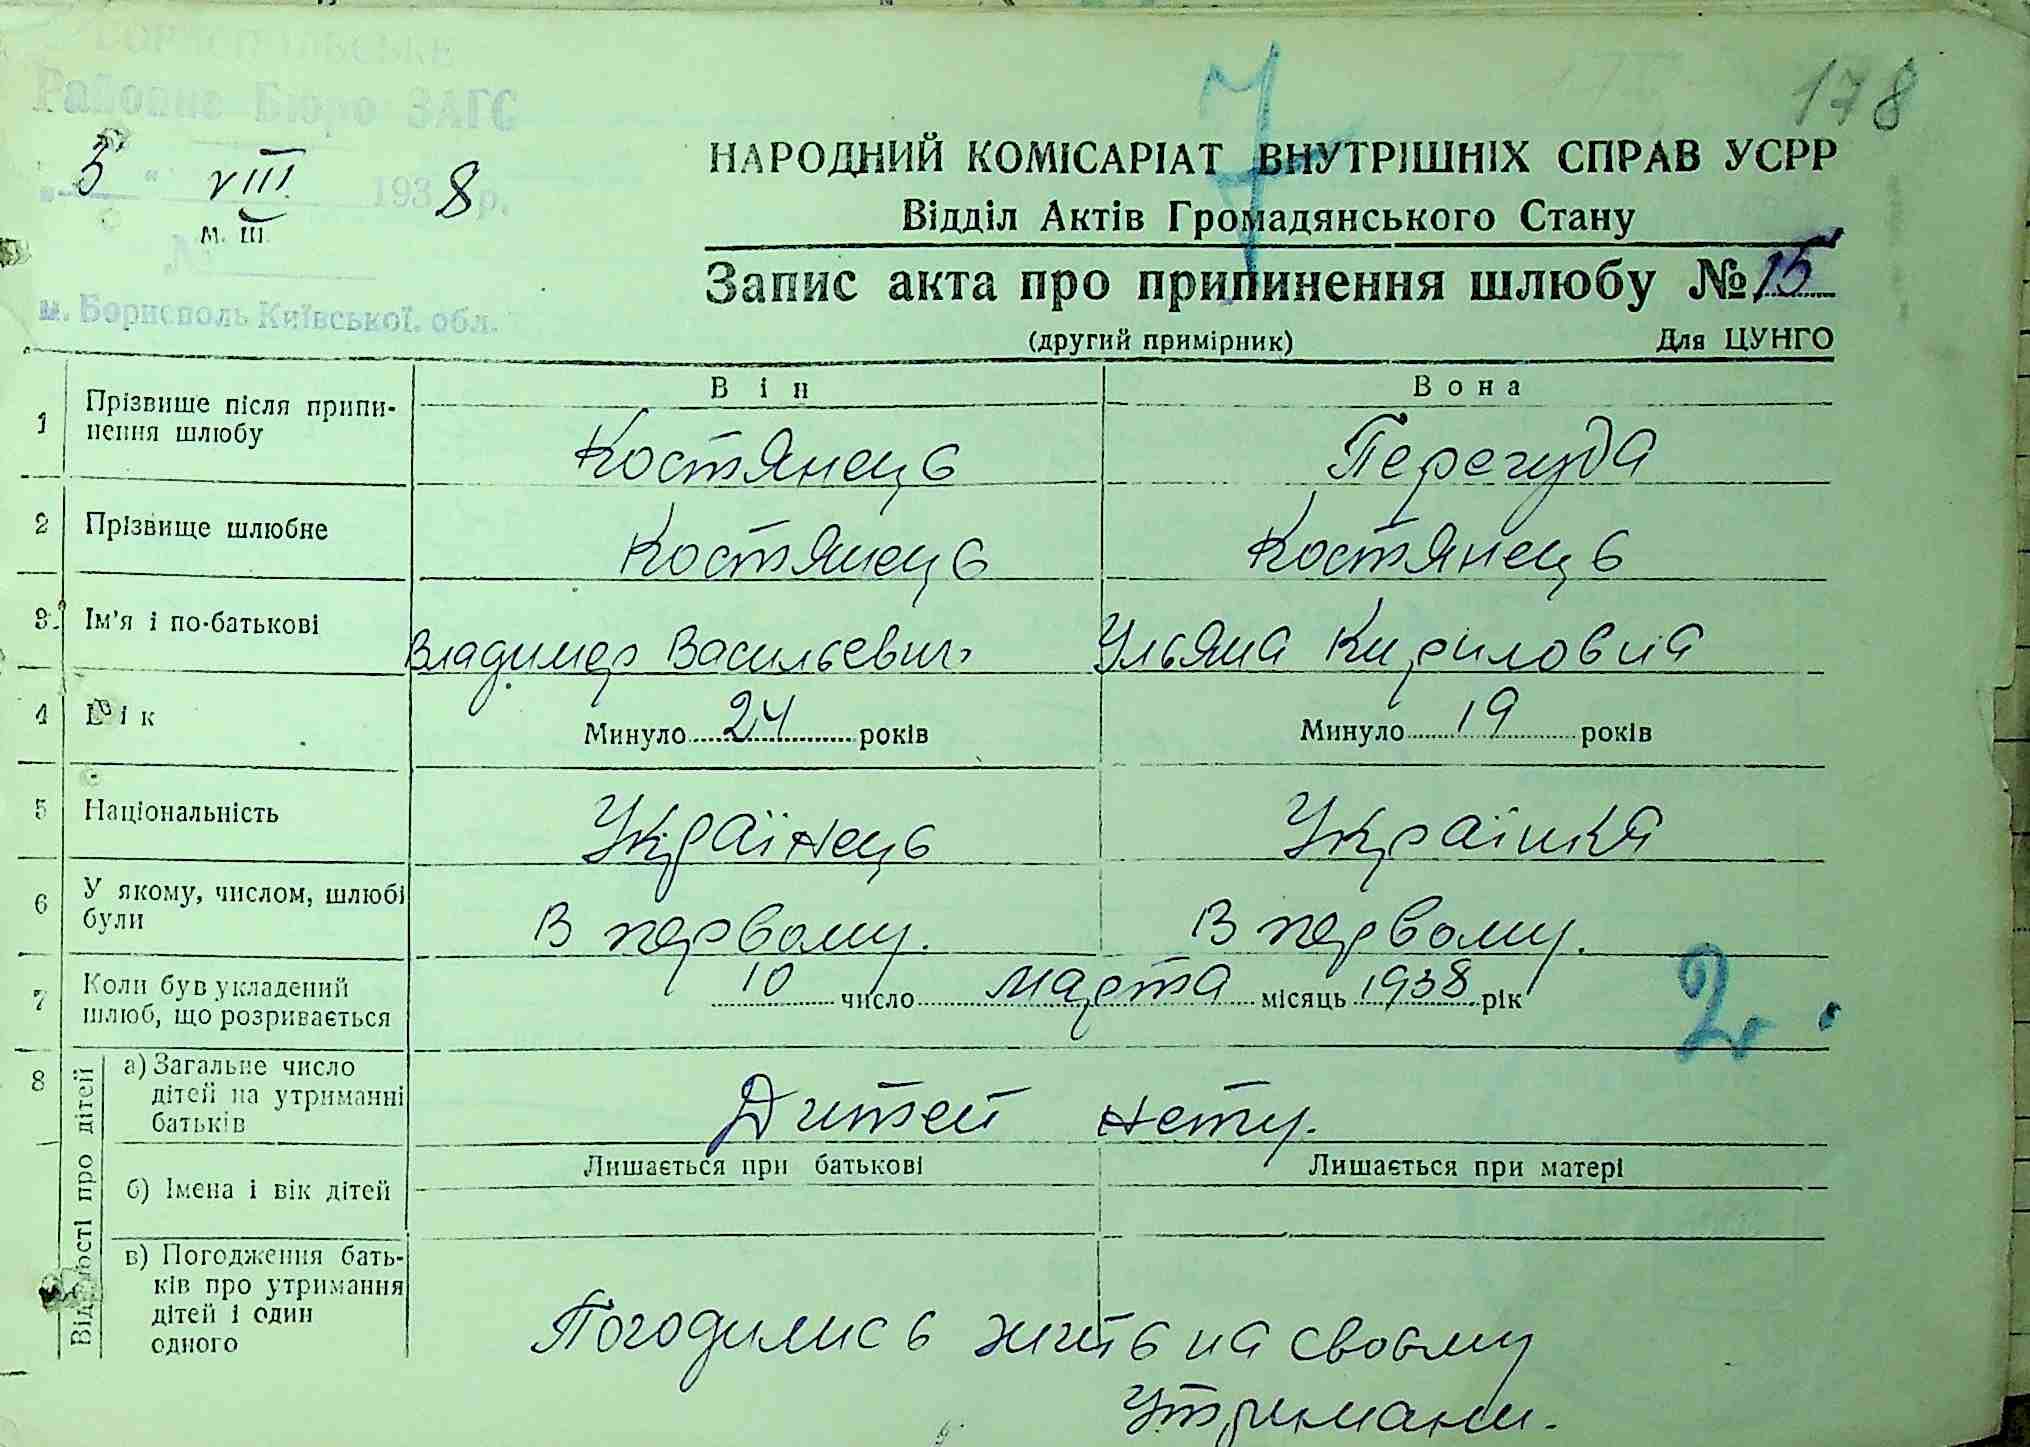 БОРИСПІЛЬСЬКЕ
Районне Бюро ЗАГС
„5“ VIII 1938 р.
м. ш.
№
м. Борисполь Київської. обл.
7
178
НАРОДНИЙ КОМІСАРІАТ ВНУТРІШНІХ СПРАВ УСРР
Відділ Актів Громадянського Стану
Запис акта про припинення шлюбу № 15
(другий примірник) Для ЦУНГО
Він Вона
1 Прізвище після припи-
нення шлюбу
Костянець Перегуда
2 Прізвище шлюбне Костянець Костянець
3. Ім'я і по-батькові Владимер Васильевич Ульяна Кириловна
4 Вік Минуло 24 років Минуло 19 років
5 Національність Українець Українка
6 У якому, числом, шлюбі
були
В первому. В первому.
7 Коли був укладений
шлюб, що розривається
10 число марта місяць 1938 рік
2
8 Відомості про дітей
а) Загальне число
дітей на утриманні
батьків
Дитей нету.
Лишається при батькові Лишається при матері
б) Імена і вік дітей
в) Погодження бать-
ків про утримання
дітей і один
одного
Погодились жить на своему
утримани.